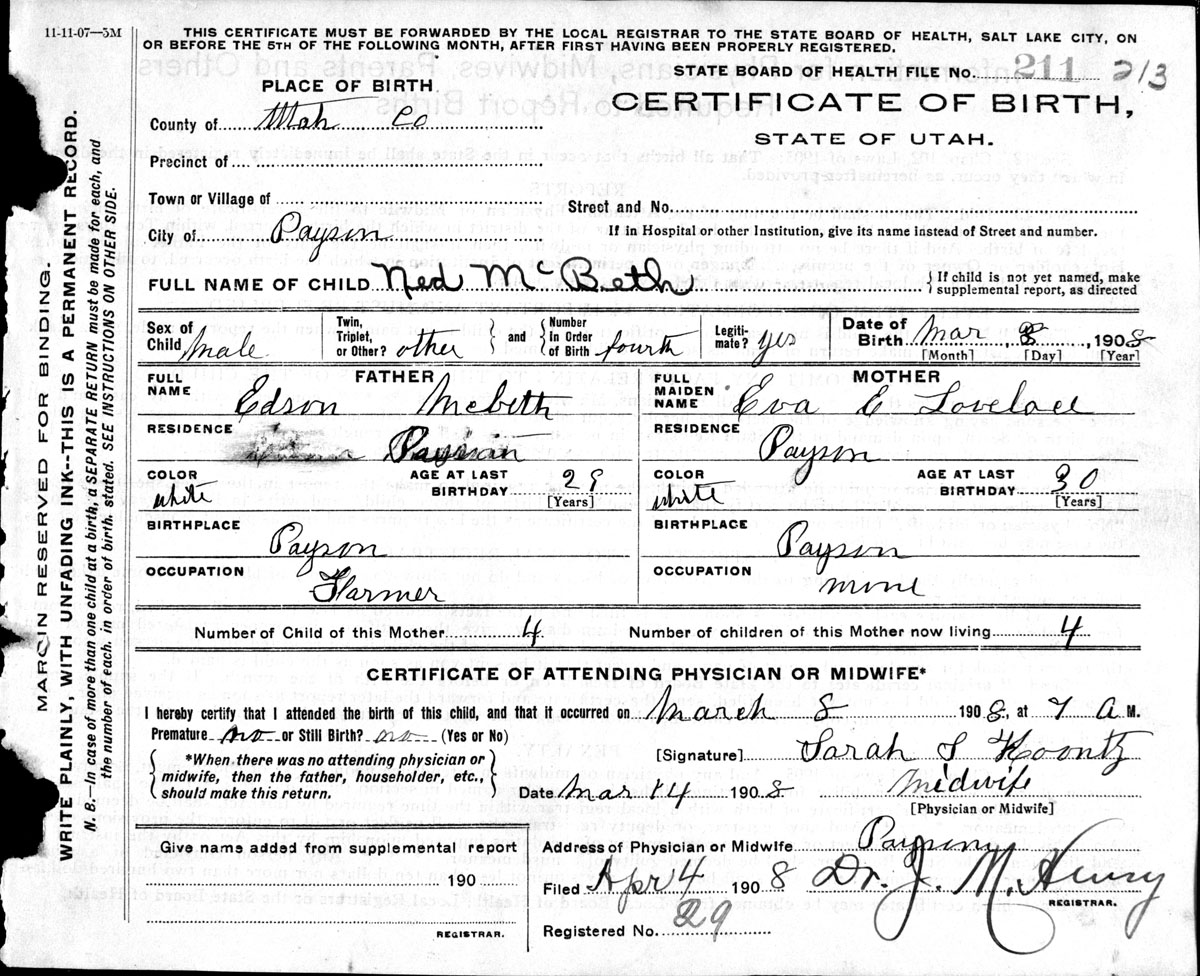 11-11-07—5M
THIS CERTIFICATE MUST BE FORWARDED BY THE LOCAL REGISTRAR TO THE STATE BOARD OF HEALTH, SALT LAKE CITY, ON
OR BEFORE THE 5TH OF THE FOLLOWING MONTH, AFTER FIRST HAVING BEEN PROPERLY REGISTERED.
STATE BOARD OF HEALTH FILE No. 211 213
PLACE OF BIRTH
CERTIFICATE OF BIRTH,
STATE OF UTAH.
County of Utah Co
Precinct of
Town or Village of
Street and No.
City of Payson
If in Hospital or other Institution, give its name instead of Street and number.
FULL NAME OF CHILD Ned McBeth
{ If child is not yet named, make
supplemental report, as directed
Sex of Child Male
Twin, Triplet, or Other? other
and
Number In Order of Birth fourth
Legiti-mate? yes
Date of Birth Mar 8, 1908
[Month] [Day] [Year]
FATHER
FULL NAME Edson McBeth
RESIDENCE Payson
COLOR white
AGE AT LAST BIRTHDAY 29 [Years]
BIRTHPLACE Payson
OCCUPATION Farmer
MOTHER
FULL MAIDEN NAME Eva E Lovelace
RESIDENCE Payson
COLOR white
AGE AT LAST BIRTHDAY 30 [Years]
BIRTHPLACE Payson
OCCUPATION none
Number of Child of this Mother 4
Number of children of this Mother now living 4
CERTIFICATE OF ATTENDING PHYSICIAN OR MIDWIFE*
I hereby certify that I attended the birth of this child, and that it occurred on March 8 1908, at 7 A M.
Premature no or Still Birth? no (Yes or No)
*When there was no attending physician or
midwife, then the father, householder, etc.,
should make this return.
[Signature] Sarah S Koontz
Date Mar 14 1908
Midwife
[Physician or Midwife]
Give name added from supplemental report
190
REGISTRAR.
Address of Physician or Midwife Payson
Filed Apr 4 1908 Dr. J. M. Henry
REGISTRAR.
Registered No. 29
MARGIN RESERVED FOR BINDING.
WRITE PLAINLY, WITH UNFADING INK--THIS IS A PERMANENT RECORD.
N. B.—In case of more than one child at a birth, a SEPARATE RETURN must be made for each, and
the number of each, in order of birth, stated. SEE INSTRUCTIONS ON OTHER SIDE.